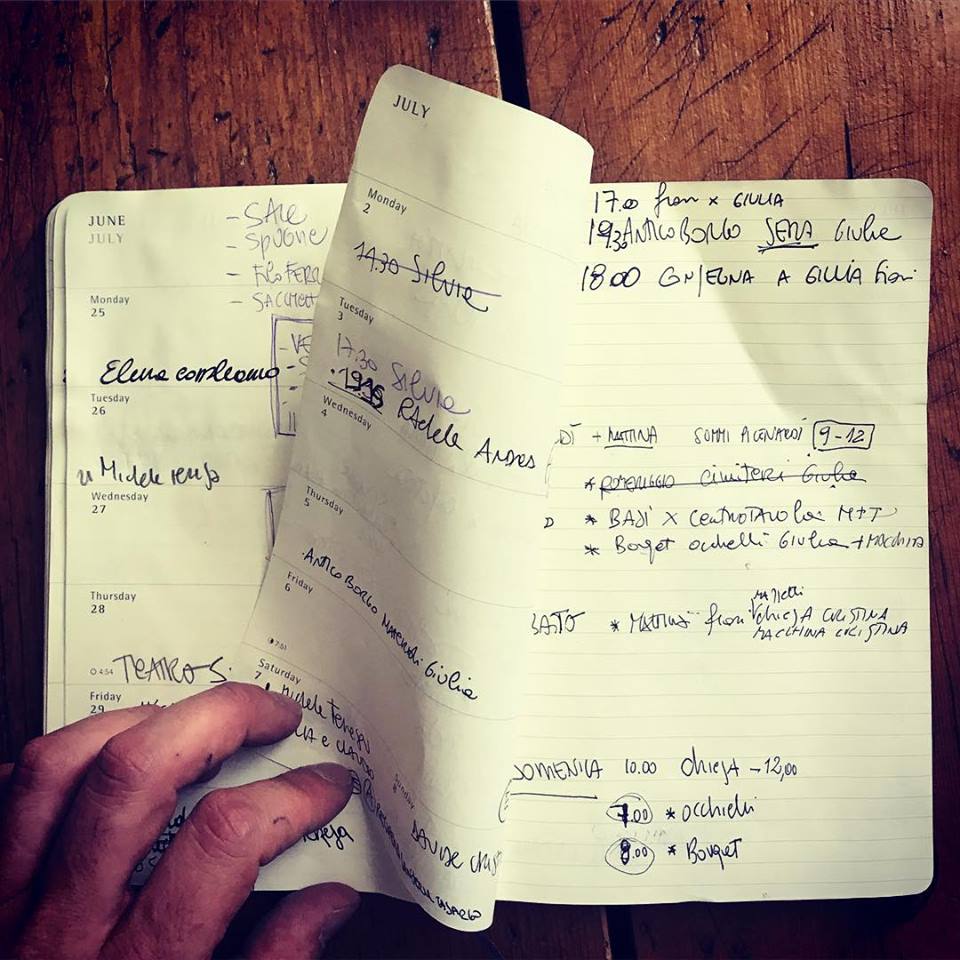 JUNE
JULY
- SALE
- SPUGNE
- FILO FERR
- SACCHETT
Monday
25
- VE
Elena compleanno
Tuesday
26
Michele
Wednesday
27
Thursday
28
4:54 TEATRO S.
Friday
29
JULY
Monday
2
14.30 Silvia
Tuesday
3
17.30 Silvia
RACHELE ANDREA
Wednesday
4
Thursday
5
ANTICO BORGO Giulia
Friday
6
7:51
Saturday
7
Michele Teresa
E CLAUDIO
Sunday
8
DAVIDE CRIST
17.00 fiori x GIULIA
19.30 ANTICO BORGO SERA Giulia
18.00 A GIULIA fiori
DÌ + MATTINA SOMMI PICENARDI 9-12
* POMERIGGIO cimiteri Giulia
* BASI X CENTROTAVOLA M+T
* Bouquet occhielli Giulia + MACCHINA
SABATO * MATTINA fiori chiesa CRISTINA
mazzetti
MACCHINA CRISTINA
DOMENICA 10.00 chiesa - 12,00
7.00 * occhielli
8.00 * Bouquet